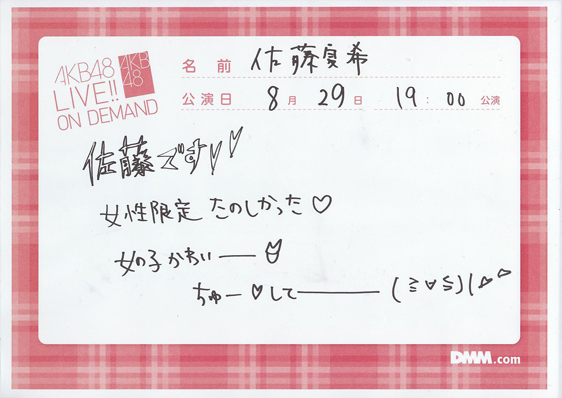 AKB48
LIVE!!
ON DEMAND
AKB
48
名前 佐藤夏希
公演日 8月 29日 19:00 公演
佐藤です♡♡
女性限定 たのしかった♡
女の子かわいー♡
ちゅー♡してー (≧∨≦)
DMM.com